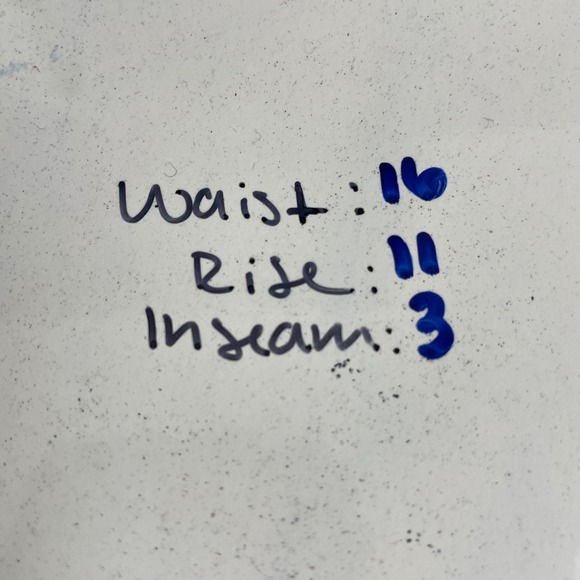 Waist: 16
Rise: 11
Inseam: 3